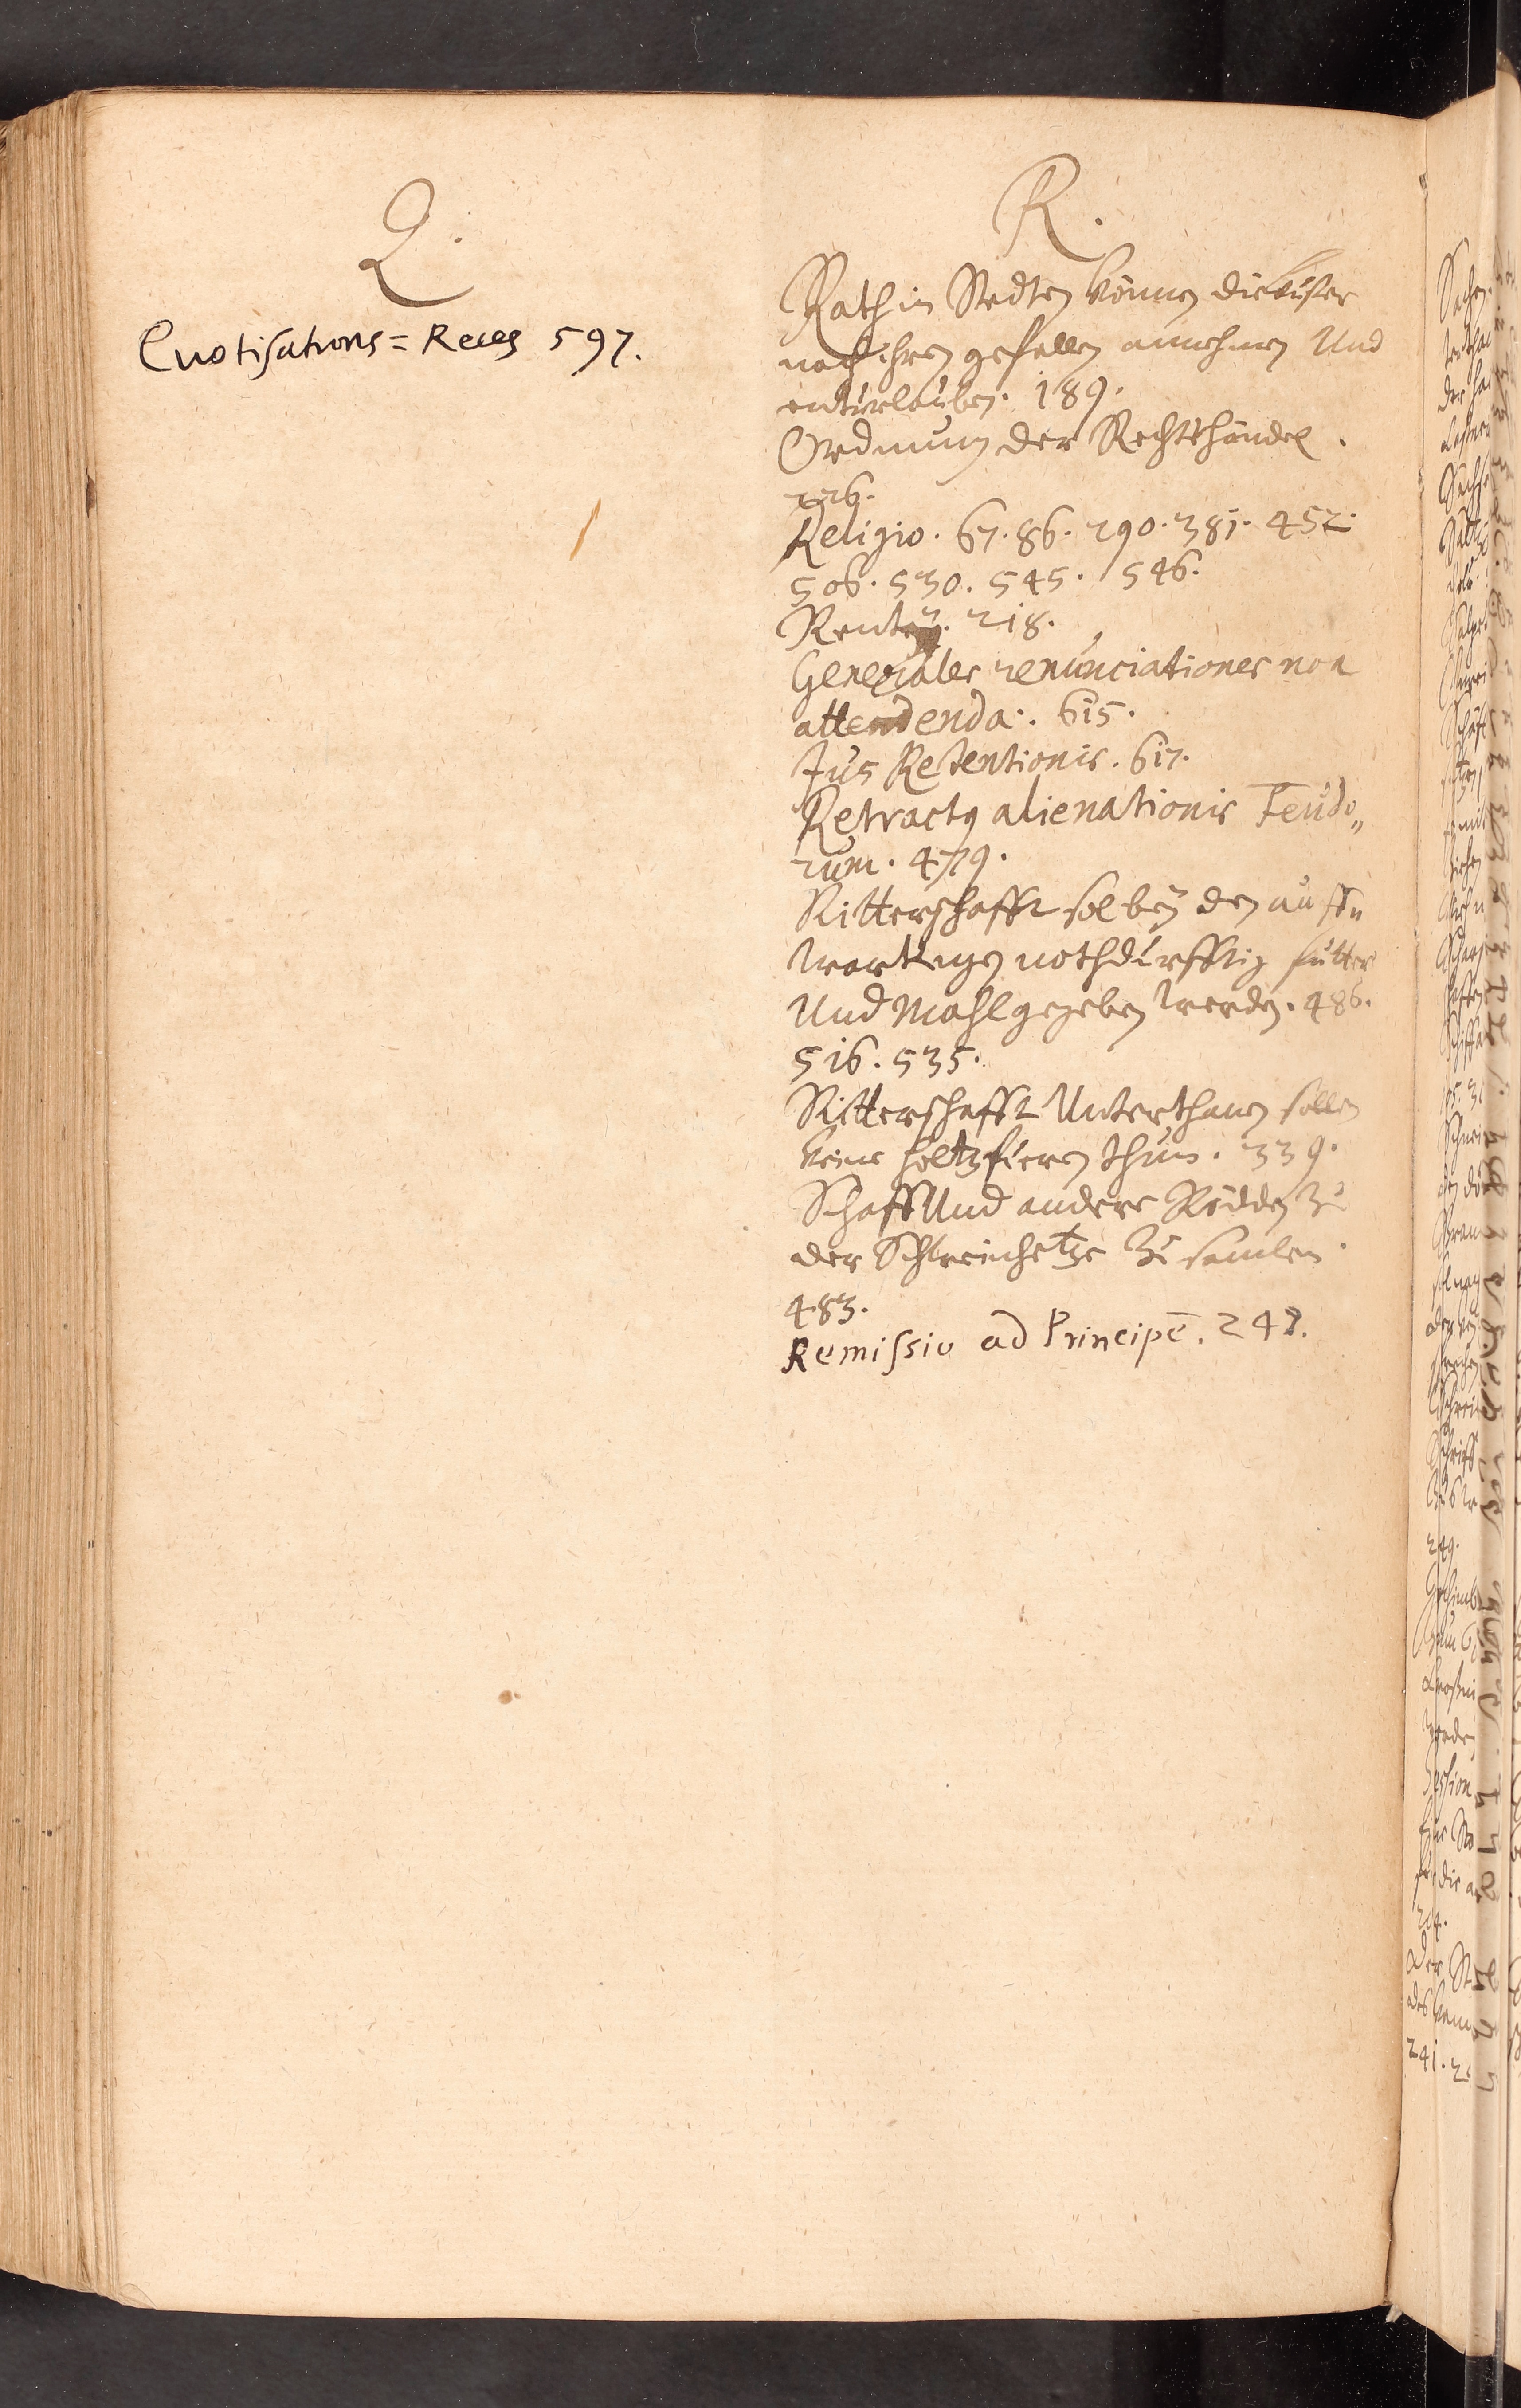 Q.
Quotisations=Reces 597.
R.
Rath in Stedten können die Küster
nach ihren gefallen annehmen Und
enturlauben. 189.
Ordnung der Rechtshändel.
226.
Religio. 67. 86. 290. 381. 452.
506. 530. 545. 546.
Rentey. 218.
Generales renunciationes non
attendenda. 615.
Jus Retentionis. 617.
Retractus alienationis Feudo„
rum. 479.
Ritterschafft sol bey den auff„
wartungen nothdürfftig futter
Und Mahl gegeben werden. 486.
516. 535.
Ritterschafft Unterthanen sollen
keine holtzfüren thun. 339.
Schaff Und andere Rödden zu
der Schweinhetze zu samlen.
483.
Remissio ad Principē. 242.